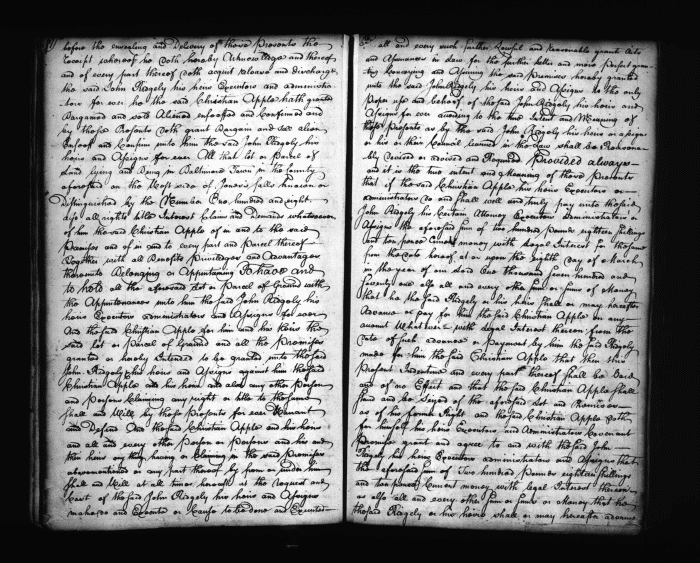 before the ensealing and Delivery of these Presents the
Receipt whereof he doth hereby Acknowledge and thereof
and of every part thereof doth acquit release and discharge
the said John Ridgely his heirs Executors and administra
tors for ever he the said Christian Apple hath granted
Bargained and sold Aliened enfeoffed and Confirmed and
by these Presents doth grant Bargain and sell alien
Enfeoff and Confirm unto him the said John Ridgely his
heirs and Assigns for ever All that lot or Parcel of
Land lying and being in Baltimore Town in the County
aforesaid on the West side of Jones's falls known or
Distinguished by the Number One hundred and eight
Also all right title Interest Claim and Demand whatsoever
of him the said Christian Apple of in and to the said
Premises and of in and to every part and Parcel thereof
Together with all Benefits Priviledges and Advantages
thereunto Belonging or Appertaining To have and
to hold all the aforesaid lot or Parcel of Ground with
the Appurtenances unto him the said John Ridgely his
heirs Executors administrators and Assigns for ever
And the said Christian Apple for him and his heirs the
said lot or Parcel of Ground and all the Premises
granted or hereby Intended to be granted unto the said
John Ridgely his heirs and Assigns against him the said
Christian Apple and his heirs and also any other Person
and Persons Claiming any right or title to the same
Shall and Will by these Presents for ever Warrant
and Defend And the said Christian Apple and his heirs
and all and every other Person or Persons and his and
their heirs any thing having or Claiming in the said premises
abovementioned or any part thereof by from or under him
Shall and Will at all times hereafter at the request and
Cost of the said John Ridgely his heirs and Assigns
make do and Execute or Cause to be done and Executed
all and every such further Lawful and reasonable grants Acts
and Assurances in Law for the further better and more perfect gran-
ting Conveying and Assuring the said Premises hereby granted
unto the said John Ridgely his heirs and Assigns to the only
Proper use and behoof of the said John Ridgely his heirs and
Assigns for ever according to the true Intent and Meaning of
these Presents as by the said John Ridgely his heirs or assigns
or his or their Council learned in the Law shall be Reasona-
bly devised or advised and Required Provided always
and it is the true intent and Meaning of these Presents
that if the said Christian Apple his heirs Executors or
administrators do and Shall well and truly pay unto the said
John Ridgely his Certain Attorney Executors administrators or
Assigns the aforesaid sum of two hundred Pounds eighteen shillings
and ten pence Current money with Legal Interest for the same
from the date hereof, at or upon the Eighth day of March
in the year of our Lord One thousand Seven hundred and
Seventy one also all and every other Sum or Sums of Money
that he the said Ridgely or his heirs Shall or may hereafter
Advance or pay for him the said Christian Apple on any
account Whatever with Legal Interest thereon from the
date of such advance or payment by him the said Ridgely
made for him the said Christian Apple that then this
Present Indenture and every part thereof shall be Void
and of no Effect and that the said Christian Apple Shall
stand and be Seized of the aforesaid lot and Premises
as of his former Right and the said Christian Apple doth
for himself his heirs Executors and Administrators Covenant
Promise grant and agree to and with the said John
Ridgely his heirs Executors administrators and Assigns that
the aforesaid sum of Two hundred Pounds eighteen Shillings
and ten pence Current money with legal Interest thereon
as also all and every other Sum or Sums of Money that he
the said Ridgely or his heirs shall or may hereafter advance